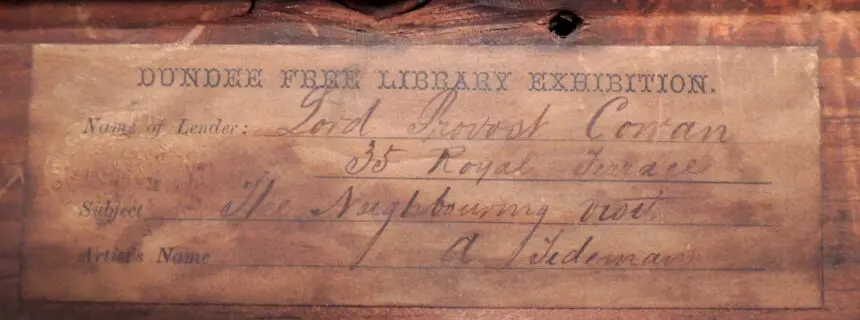 DUNDEE FREE LIBRARY EXHIBITION.
Name of Lender: Lord Provost Cowan
35 Royal Terrace
Subject The Neighbouring visit
Artist's Name A Tideman